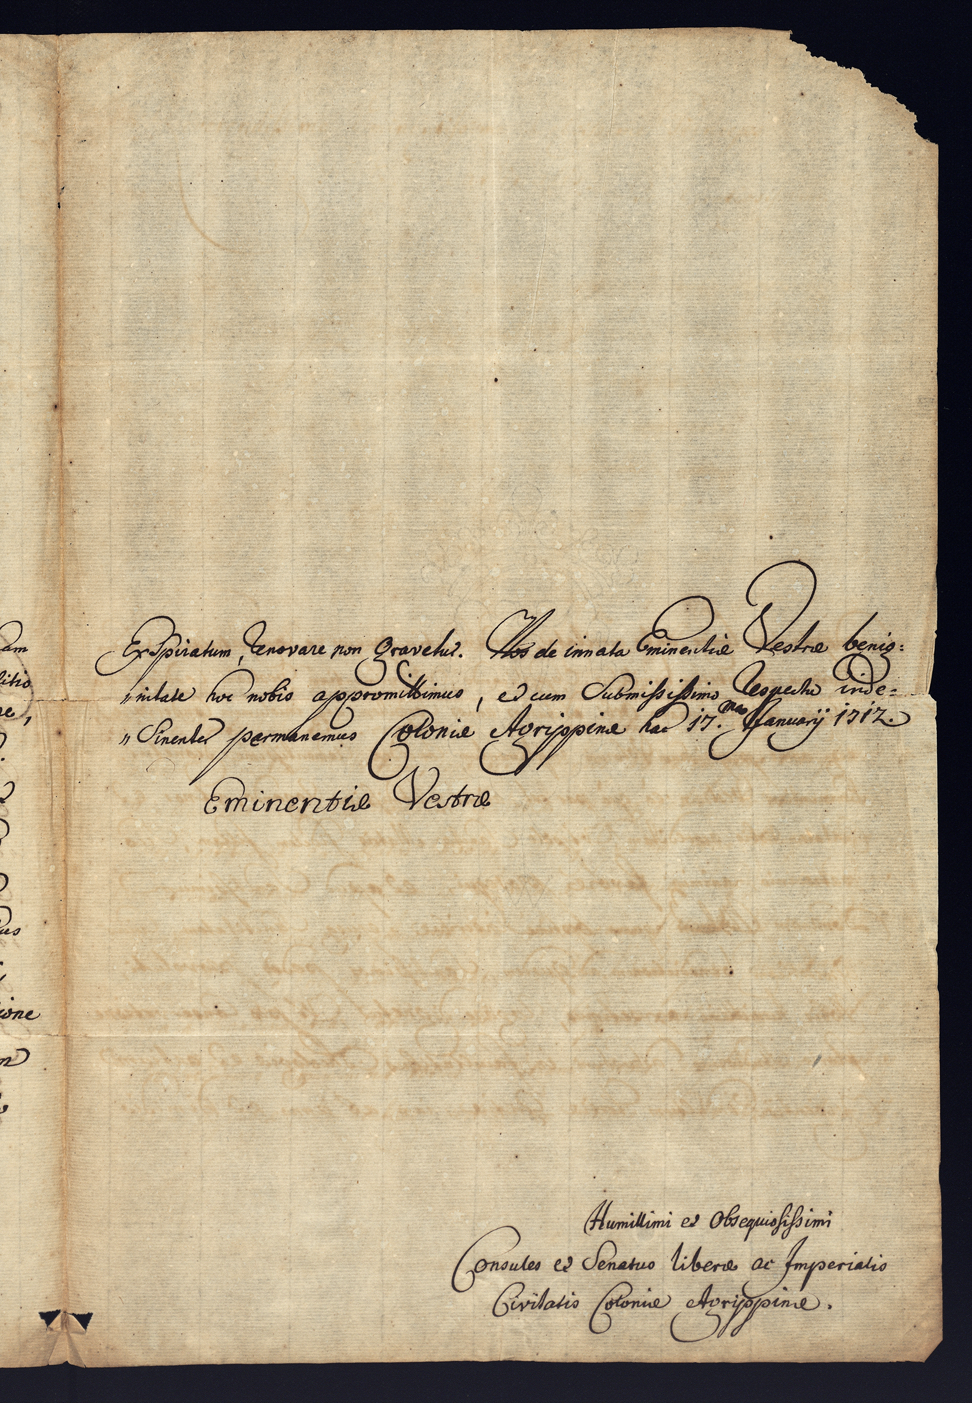 Exspiratum, renovare non gravetur. Nos de innata Eminentiæ Vestræ benig=
"nitate hoc nobis appromittimus, et cum submississimo respectu inde=
"sinenter permanemus Coloniæ Agrippinæ hac 17.ma Januarij 1712.
Eminentiæ Vestræ
Humillimi et obsequiosissimi
Consules et Senatus liberæ ac Imperialis
Civitatis Coloniæ Agrippinæ.